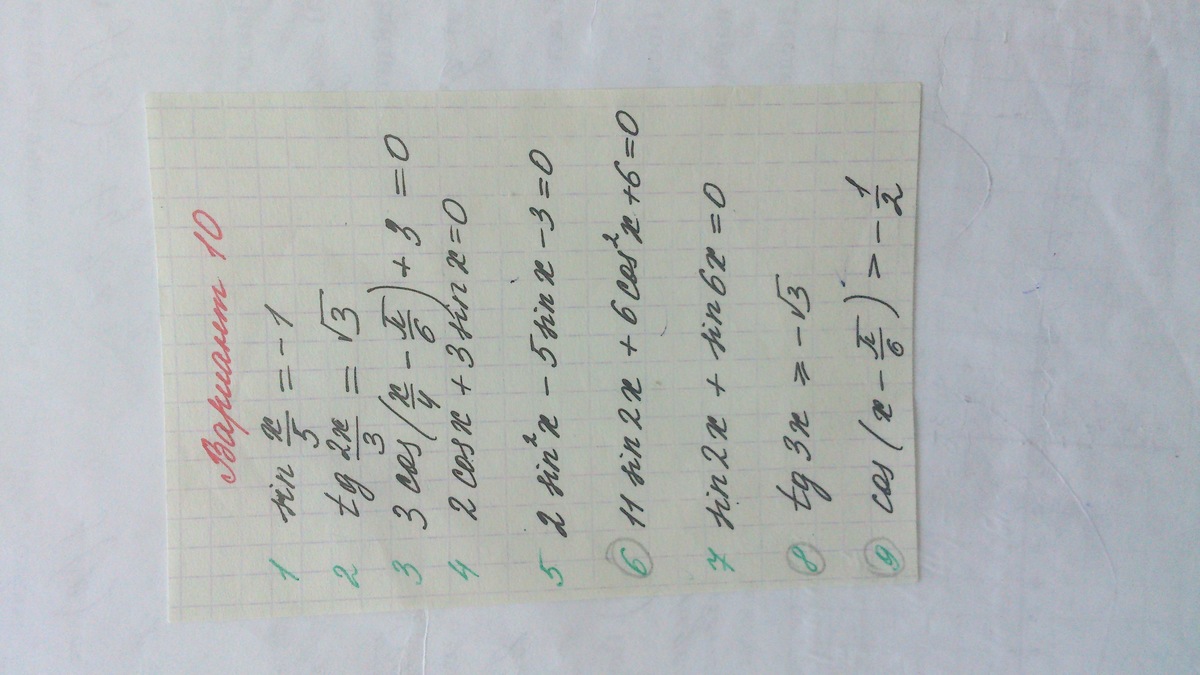 Вариант 10
1 sin x/5 = -1
2 tg 2x/3 = √3
3 3 cos(x/4 - π/6) + 3 = 0
4 2 cos x + 3 sin x = 0
5 2 sin² x - 5 sin x - 3 = 0
6 11 sin 2x + 6 cos² x + 6 = 0
7 sin 2x + sin 6x = 0
8 tg 3x ≥ -√3
9 cos(x - π/6) > -1/2